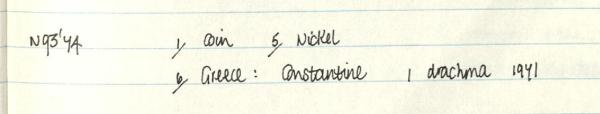 N93'44 1, Coin 5, Nickel
6, Greece: Constantine 1 drachma 1941